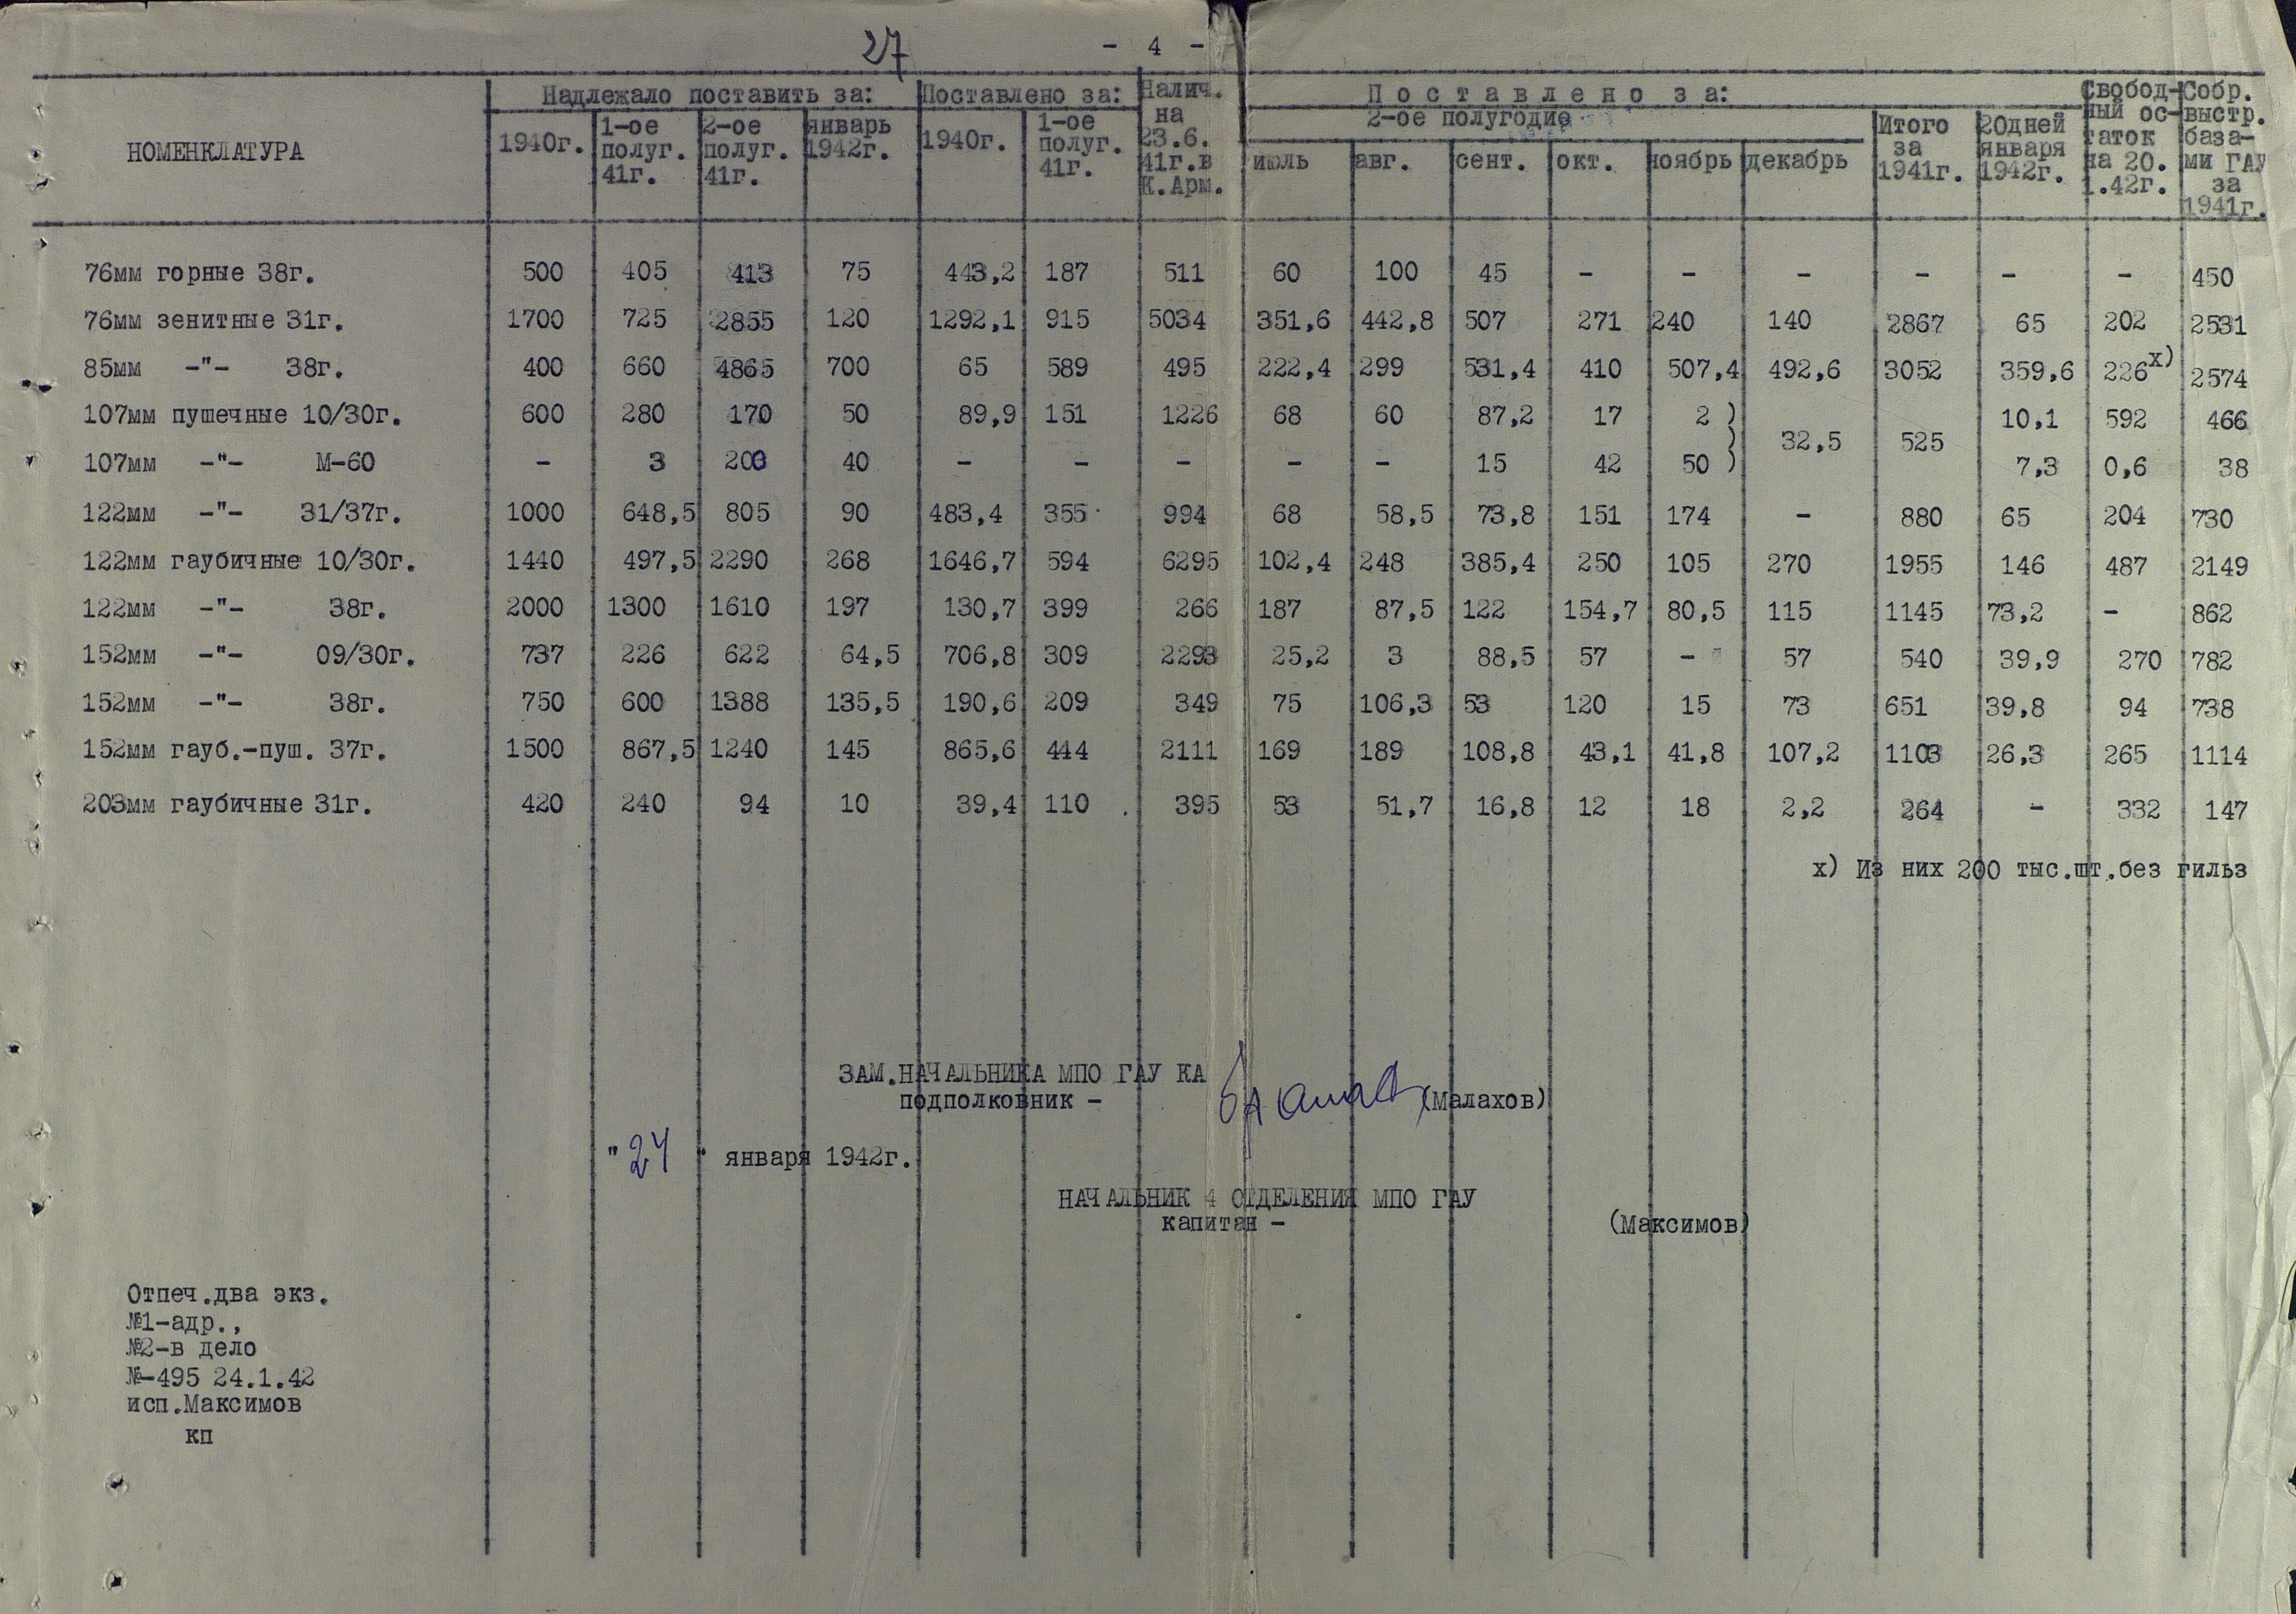 27
- 4 -
НОМЕНКЛАТУРА
Надлежало поставить за:
1940г.
1-ое полуг. 41г.
2-ое полуг. 41г.
январь 1942г.
Поставлено за:
1940г.
1-ое полуг. 41г.
Налич. на 23.6. 41г.в К.Арм.
Поставлено за:
2-ое полугодие
июль авг. сент. окт. ноябрь декабрь
Итого за 1941г.
20дней января 1942г.
Свобод- ный ос- таток на 20. 1.42г.
Собр. выстр. база- ми ГАУ за 1941г.
76мм горные 38г. 500 405 413 75 443,2 187 511 60 100 45 - - - - - - 450
76мм зенитные 31г. 1700 725 2855 120 1292,1 915 5034 351,6 442,8 507 271 240 140 2867 65 202 2531
85мм -"- 38г. 400 660 4865 700 65 589 495 222,4 299 531,4 410 507,4 492,6 3052 359,6 226х) 2574
107мм пушечные 10/30г. 600 280 170 50 89,9 151 1226 68 60 87,2 17 2 ) 10,1 592 466
) 32,5 525
107мм -"- М-60 - 3 200 40 - - - - - 15 42 50 ) 7,3 0,6 38
122мм -"- 31/37г. 1000 648,5 805 90 483,4 355 994 68 58,5 73,8 151 174 - 880 65 204 730
122мм гаубичные 10/30г. 1440 497,5 2290 268 1646,7 594 6295 102,4 248 385,4 250 105 270 1955 146 487 2149
122мм -"- 38г. 2000 1300 1610 197 130,7 399 266 187 87,5 122 154,7 80,5 115 1145 73,2 - 862
152мм -"- 09/30г. 737 226 622 64,5 706,8 309 2293 25,2 3 88,5 57 - 57 540 39,9 270 782
152мм -"- 38г. 750 600 1388 135,5 190,6 209 349 75 106,3 53 120 15 73 651 39,8 94 738
152мм гауб.-пуш. 37г. 1500 867,5 1240 145 865,6 444 2111 169 189 108,8 43,1 41,8 107,2 1103 26,3 265 1114
203мм гаубичные 31г. 420 240 94 10 39,4 110 395 53 51,7 16,8 12 18 2,2 264 - 332 147
х) Из них 200 тыс.шт.без гильз
ЗАМ.НАЧАЛЬНИКА МПО ГАУ КА
подполковник - (Малахов)
"24" января 1942г.
НАЧАЛЬНИК 4 ОТДЕЛЕНИЯ МПО ГАУ
капитан - (Максимов)
Отпеч.два экз.
№1-адр.,
№2-в дело
№-495 24.1.42
исп.Максимов
кп